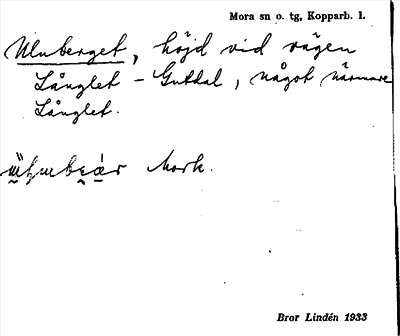 Mora sn o. tg, Kopparb. l.
Uluberget, höjd vid vägen
Långlet - Gutdal, något närmare
Långlet.
Mork.
Bror Lindén 1933